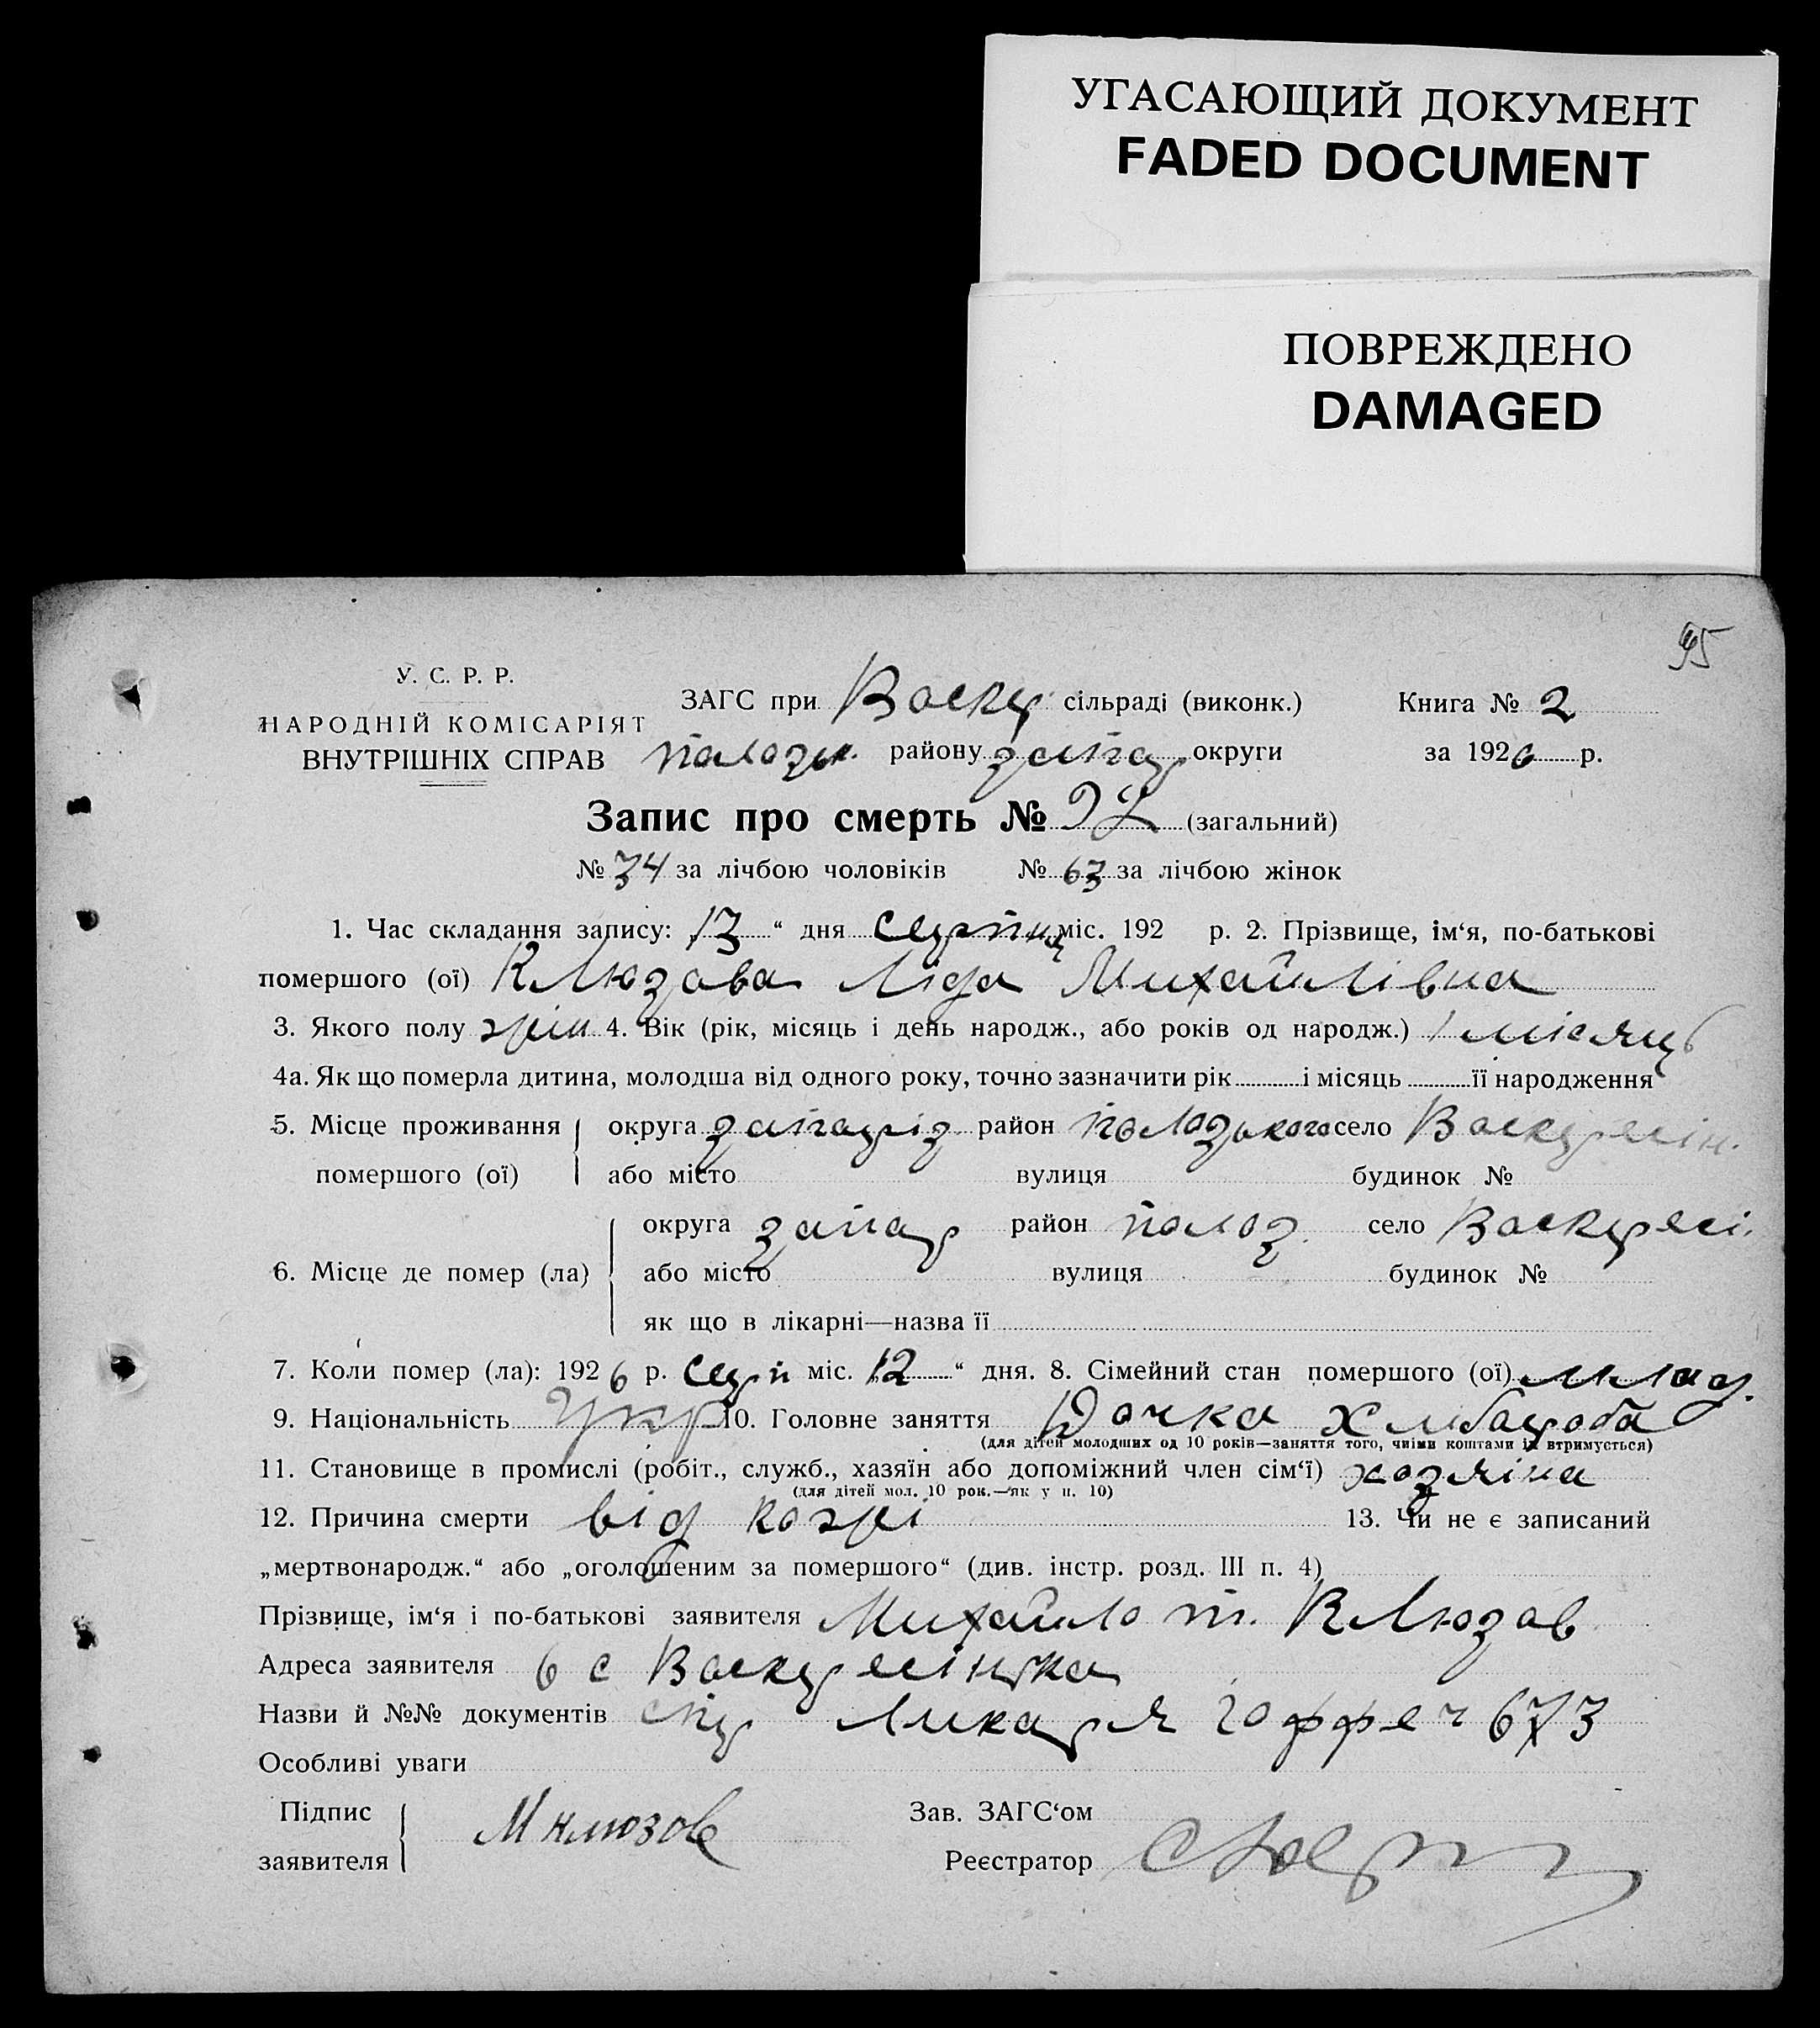 УГАСАЮЩИЙ ДОКУМЕНТ
FADED DOCUMENT
ПОВРЕЖДЕНО
DAMAGED
95
У. С. Р. Р.
НАРОДНІЙ КОМІСАРІЯТ
ВНУТРІШНІХ СПРАВ
ЗАГС при Воскр сільраді (виконк.) Книга № 2
району запор округи за 1926 р.
Запис про смерть № 97 (загальний)
№ 34 за лічбою чоловіків № 63 за лічбою жінок
1. Час складання запису: „13“ дня серпня міс. 192 р. 2. Прізвище, ім‘я, по-батькові
помершого (ої) Клюзова Ліда Михайлівна
3. Якого полу жін 4. Вік (рік, місяць і день народж., або років од народж.) 1 місяць
4а. Як що померла дитина, молодша від одного року, точно зазначити рік і місяць її народження
5. Місце проживання помершого (ої) округа запоріз район пологзького село Воскресін.
або місто вулиця будинок №
6. Місце де помер (ла) округа запор район полог. село Воскресі.
або місто вулиця будинок №
як що в лікарні—назва її
7. Коли помер (ла): 1926 р. серп міс. „12“ дня. 8. Сімейний стан помершого (ої) млад.
9. Національність Укр 10. Головне заняття Дочка хлібороба
(для дітей молодших од 10 років—заняття того, чиїми коштами їх втримується)
11. Становище в промислі (робіт., служб., хазяїн або допоміжний член сім‘ї) хозяіна
(для дітей мол. 10 рок.—як у п. 10)
12. Причина смерти від корі 13. Чи не є записаний
„мертвонародж.“ або „оголошеним за помершого“ (див. інстр. розд. III п. 4)
Прізвище, ім‘я і по-батькові заявителя Михайло т. Клюзов
Адреса заявителя в с Воскресінка
Назви й №№ документів спр Ликаря 673
Особливі уваги
Підпис заявителя М Клюзов Зав. ЗАГС‘ом
Реєстратор